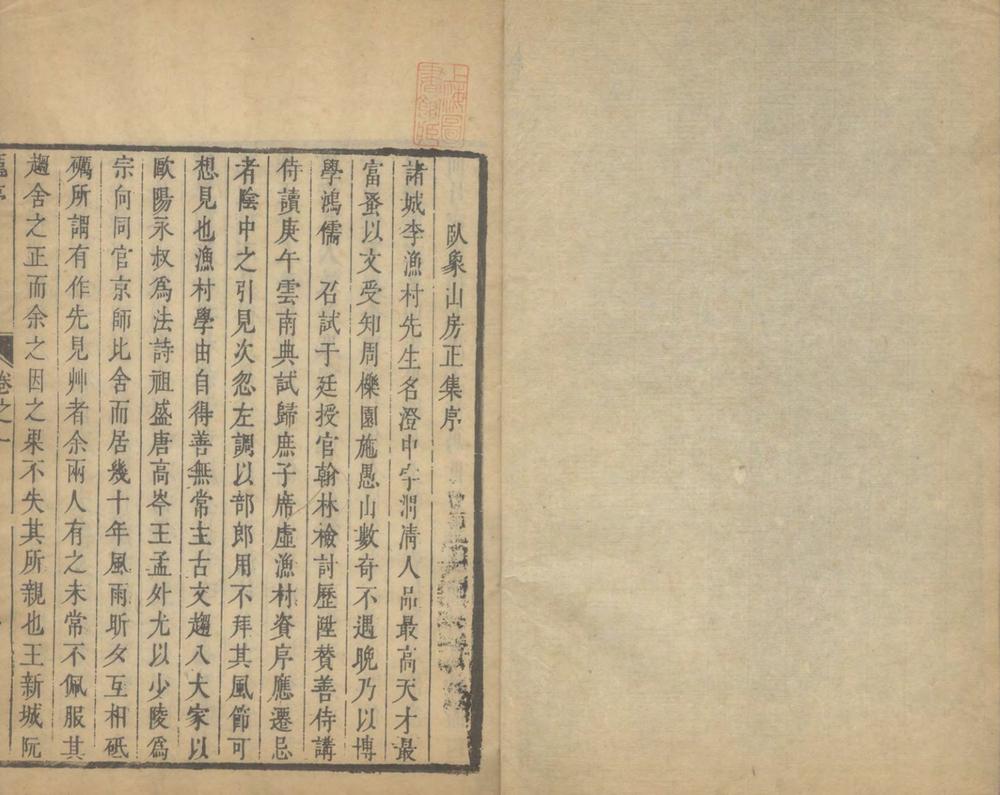 臥象山房正集序
諸城李漁村先生名澄中字渭清人品最高天才最
富蚤以文受知周櫟園施愚山數奇不遇晚乃以博
學鴻儒 召試于廷授官翰林檢討歷陞贊善侍講
侍讀庚午雲南典試歸庶子席虛漁村資序應遷忌
者陰中之引見次忽左調以部郎用不拜其風節可
想見也漁村學由自得善無常主古文趨八大家以
歐陽永叔爲法詩祖盛唐高岑王孟外尤以少陵爲
宗向同官京師比舍而居幾十年風雨昕夕互相砥
礪所謂有作先見艸者余兩人有之未常不佩服其
趨舍之正而余之因之果不失其所親也王新城阮
卷之一
上海圖書館